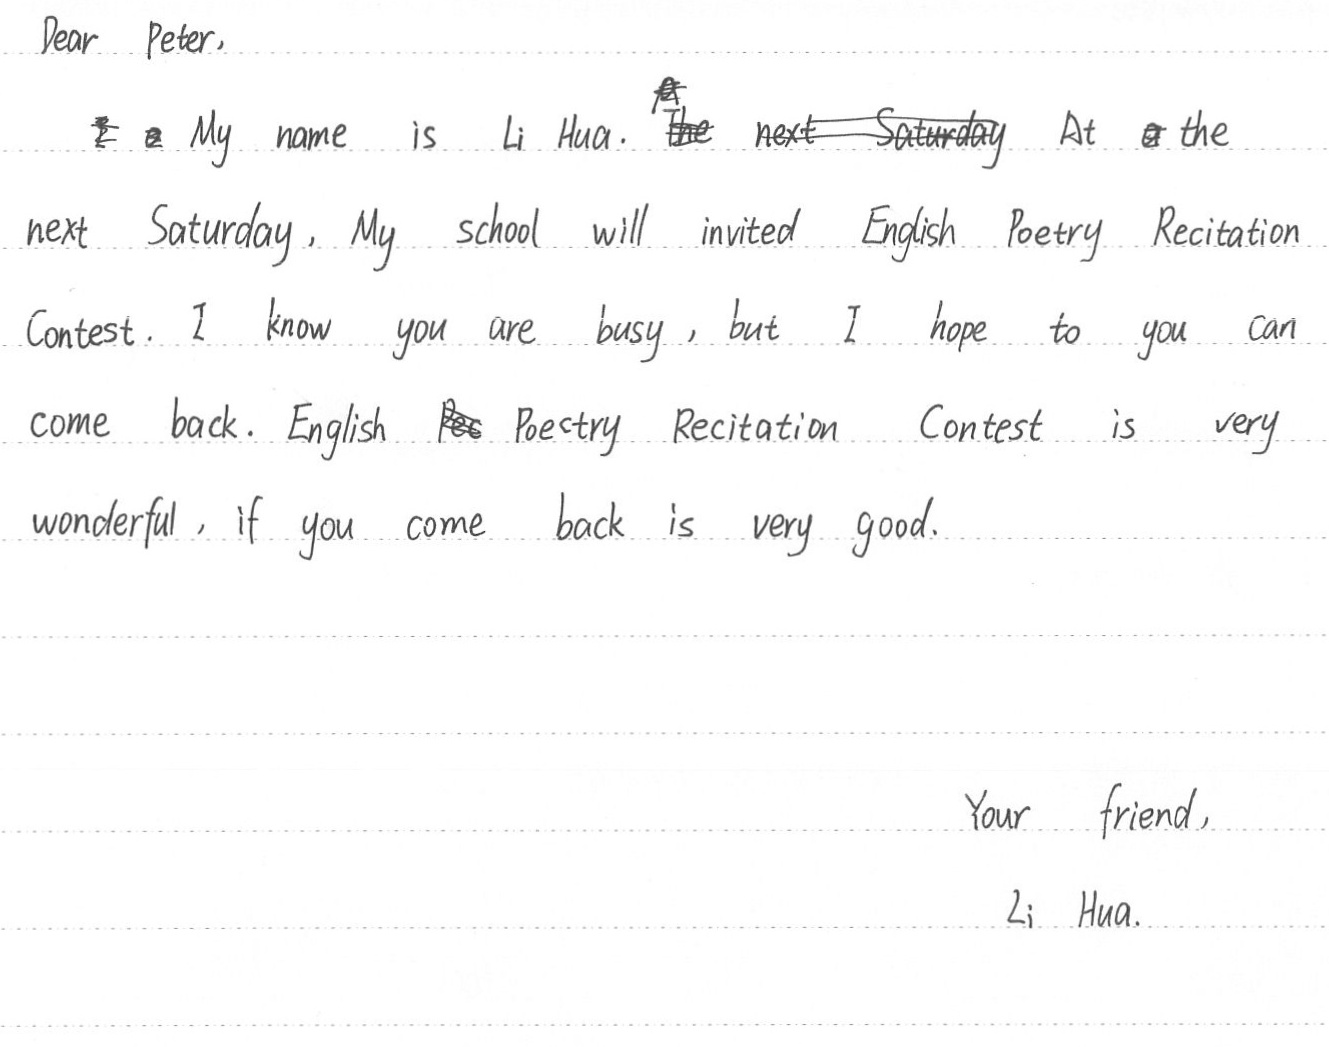 Dear Peter,
My name is Li Hua. At the
next Saturday, My school will invited English Poetry Recitation
Contest. I know you are busy, but I hope to you can
come back. English Poestry Recitation Contest is very
wonderful, if you come back is very good.
Your friend,
Li Hua.